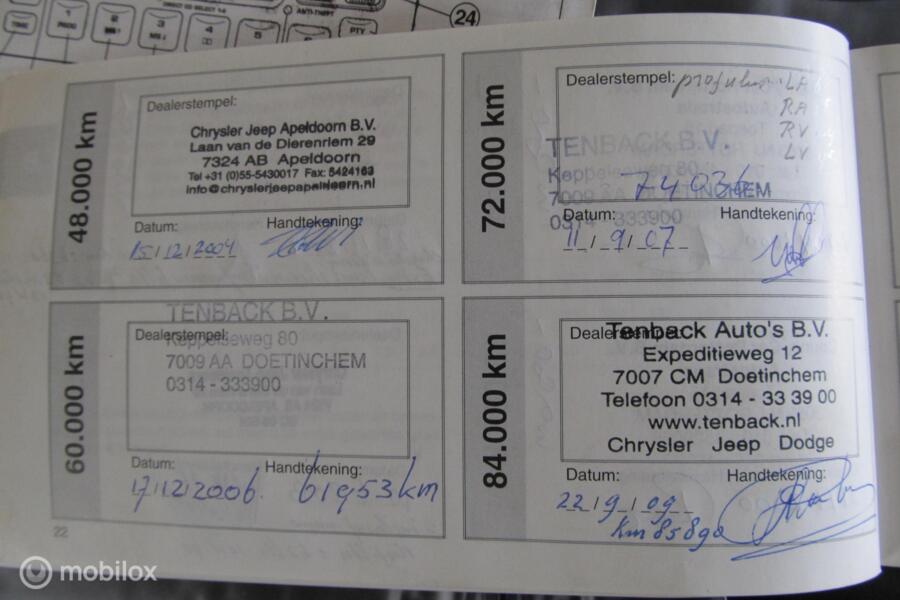 24
ANTI-THEFT
TIME
1
PROG
2
3
4
5
PTY
48.000 km
Dealerstempel:
Chrysler Jeep Apeldoorn B.V.
Laan van de Dierenriem 29
7324 AB Apeldoorn
Tel +31 (0)55-5430017 Fax: 5424163
info@chryslerjeepapeldoorn.nl
Datum:
Handtekening:
15/12/2004
72.000 km
Dealerstempel:
LA
RA
RV
LV
TENBACK B.V.
Keppelseweg 80
7009 AA DOETINCHEM
74936
0314 - 333900
Datum:
Handtekening:
11/9/07
60.000 km
TENBACK B.V.
Dealerstempel:
Keppelseweg 80
7009 AA DOETINCHEM
0314 - 333900
Datum:
Handtekening:
17/12/2006
61953km
84.000 km
Dealerstempel:
Tenback Auto's B.V.
Expeditieweg 12
7007 CM Doetinchem
Telefoon 0314 - 33 39 00
www.tenback.nl
Chrysler Jeep Dodge
Datum:
Handtekening:
22/9/09
km 85890
22
mobilox